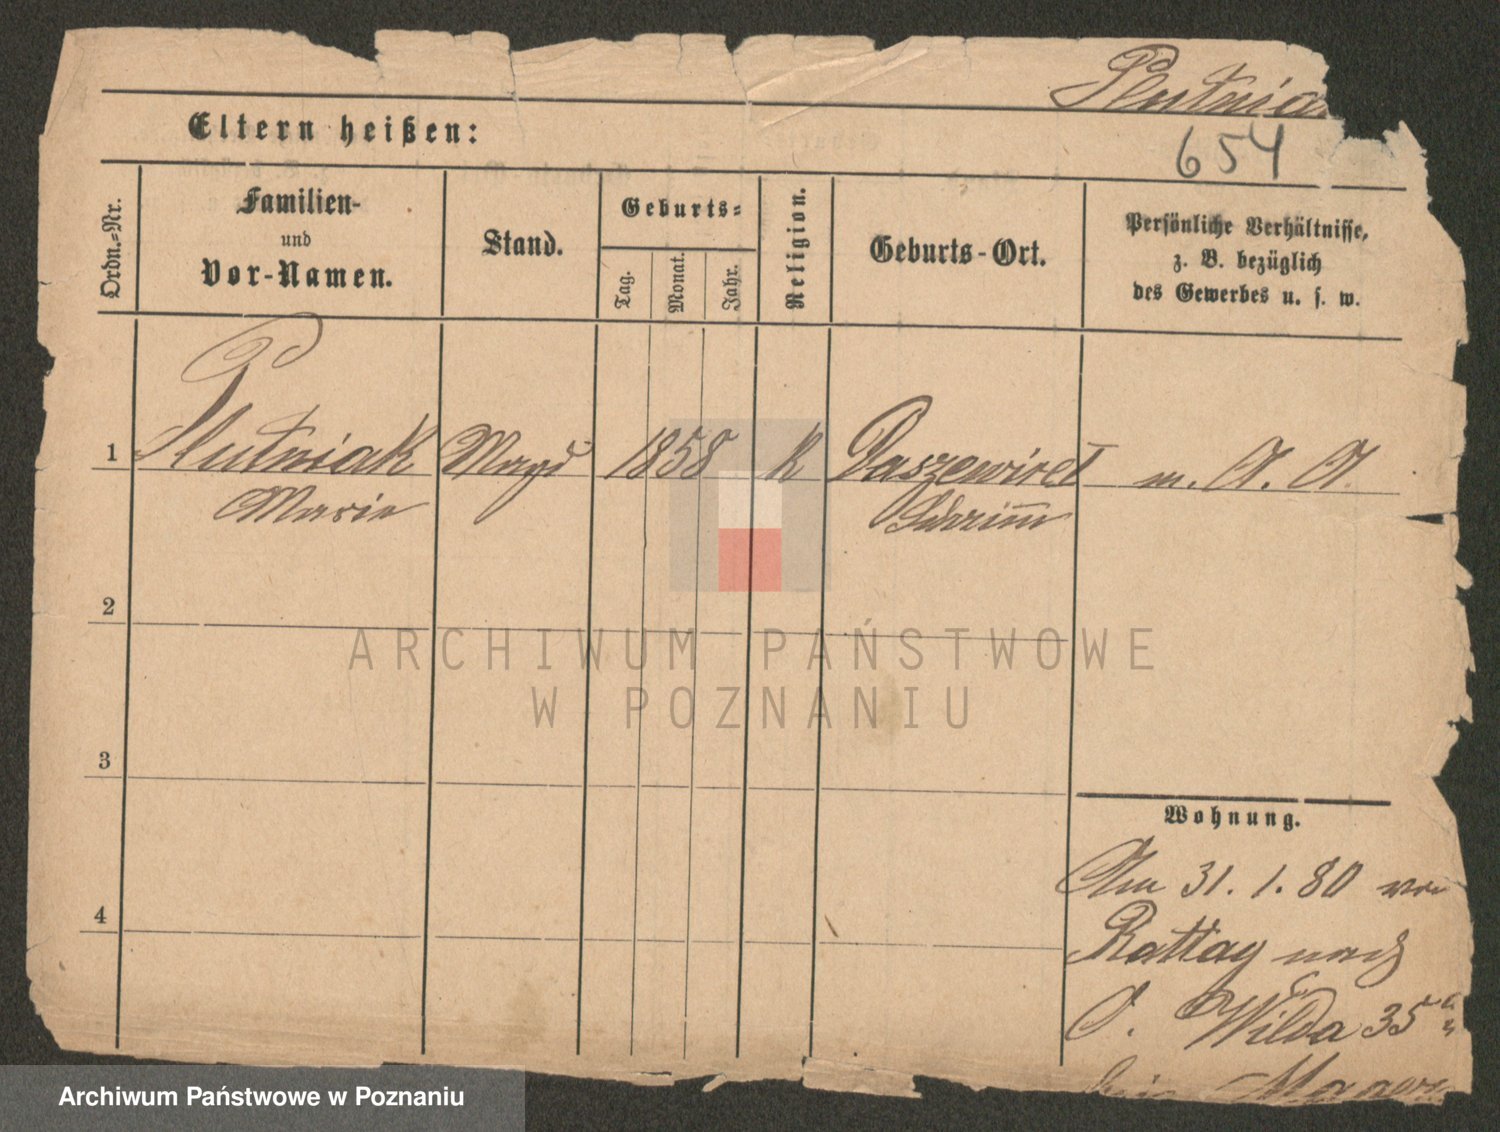 Plutnia
654
Eltern heißen:
Ordn.=Nr.
Familien-
und
Vor-Namen.
Stand.
Geburts=
Tag.
Monat.
Jahr.
Religion.
Geburts-Ort.
Persönliche Verhältnisse,
z. B. bezüglich
des Gewerbes u. s. w.
1 Plutniak Magd 1858 k m. A. A.
Marie
2
ARCHIWUM PAŃSTWOWE
W POZNANIU
3
Wohnung.
Am 31. 1. 80 von
4
Rattay nach
O. Wilda 35
Archiwum Państwowe w Poznaniu